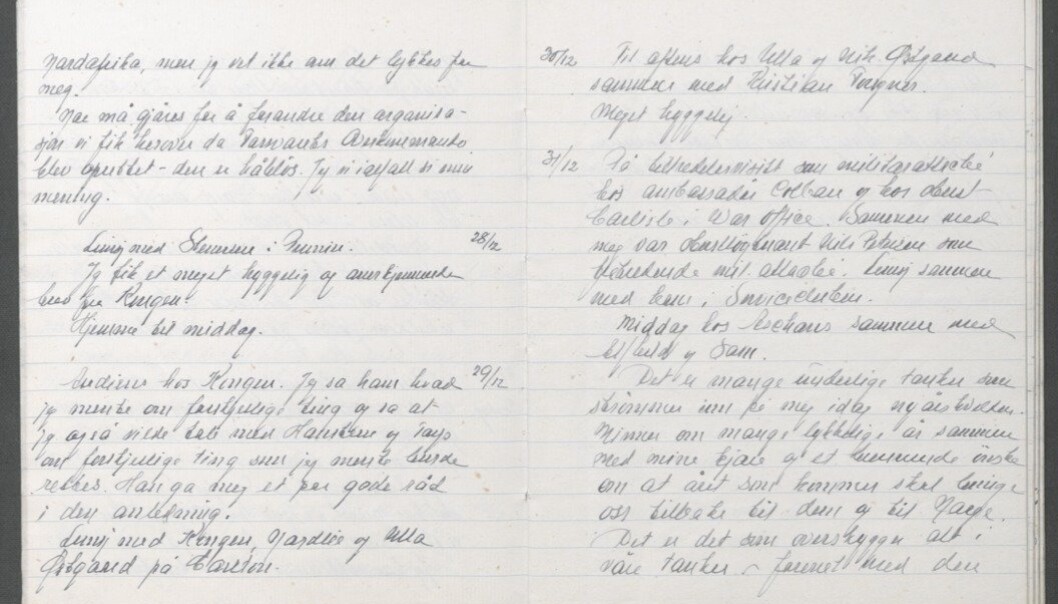 Nordafrika, men jeg vet ikke om det lykkes for
meg.
Noe må gjøres for å forandre den organisa-
sjon vi fik herover da Forsvarets Overkommando
blev opprettet - den er håblös. Jeg i ialfall i min
mening.
Lunsj med Steenene i Prunier. 28/12
Jeg fik et meget hyggelig og anerkjennende
brev fra Kongen.
Hjemme til middag.
Audiens hos Kongen. Jeg sa ham hvad 29/12
jeg mente om forskjellige ting og sa at
jeg også vilde tale med Hansteen og
om forskjellige ting som jeg mente burde
rettes. Han ga meg et par gode råd
i den anledning.
Lunsj med Kongen, Nordlie og Ulla
Østgaard på Carlton.
30/12 Til aftens hos Ulla og Nik Østgaard
sammen med Kristian
Meget hyggelig.
31/12 På tiltredelsesvisitt som militærattaché
hos ambassadør Colban og hos
Carlisle i War Office. Sammen med
meg var Oberstløytnant Nils Petersen som
mil. attaché. Lunsj sammen
med ham i
Middag hos Aschans sammen med
og Sam.
Det er mange underlige tanker som
strømmer inn på mig idag nyårskvelden.
Minner om mange lykkelige år sammen
med mine kjære og et brennende ønske
om at året som kommer skal bringe
oss tilbake til dem og til Norge.
Det er det som overskygger alt i
våre tanker - forenet med den